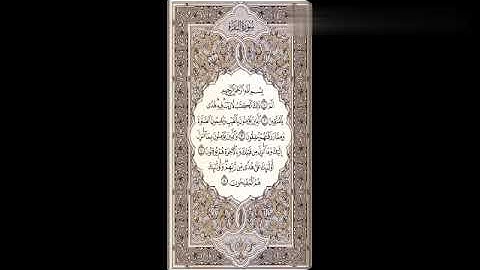 سورة البقرة
بسم الله الرحمن الرحيم
الم ۝ ذلك الكتاب لا ريب فيه هدى
للمتقين ۝ الذين يؤمنون بالغيب ويقيمون الصلوة
ومما رزقنهم ينفقون ۝ والذين يؤمنون بما أنزل
إليك وما أنزل من قبلك وبالآخرة هم يوقنون ۝
أولئك على هدى من ربهم وأولئك
هم المفلحون ۝